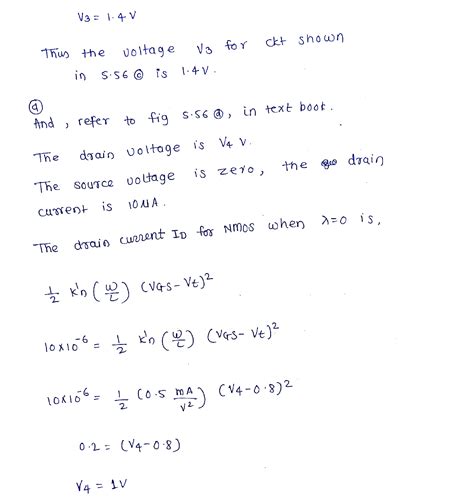 V3 = 1.4 V
Thus the voltage V3 for ckt shown
in 5.56 ⓒ is 1.4 V.
ⓓ
And, refer to fig 5.56 ⓓ, in text boot.
The drain voltage is V4 V.
The source voltage is zero, the drain
current is 10 µA.
The drain current ID for NMOS when λ=0 is,
1/2 k'n (W/L) (VGS - Vt)²
10×10⁻⁶ = 1/2 k'n (W/L) (VGS - Vt)²
10×10⁻⁶ = 1/2 (0.5 mA/V²) (V4 - 0.8)²
0.2 = (V4 - 0.8)
V4 = 1V